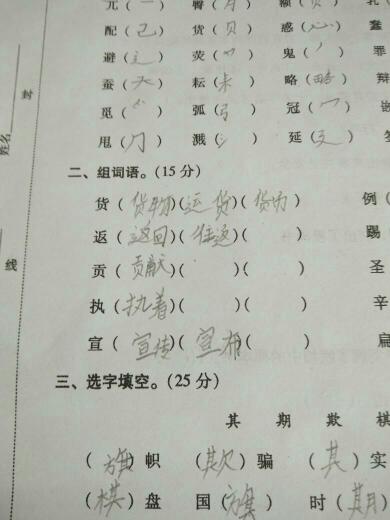 兀（一） 臀（月） 颖（页） 乳
配（己） 货（贝） 惑（心） 蠢
避（辶） 荧（艹） 鬼（丿） 罪
蚕（天） 耘（耒） 略（略） 辩
觅（爫） 弧（弓） 冠（冖）
甩（⺆） 溅（氵） 延（廴）
二、组词语。（15分）
货（货物）（运货）（货物） 例
返（返回）（往返）（ ） 踢
贡（贡献）（ ）（ ） 圣
执（执着）（ ）（ ） 辛
宣（宣传）（宣布）（ ） 扁
三、选字填空。（25分）
其 期 欺 棋
（旗）帜 （欺）骗 （其）实
（棋）盘 国（旗） 时（期）
姓名
封
线